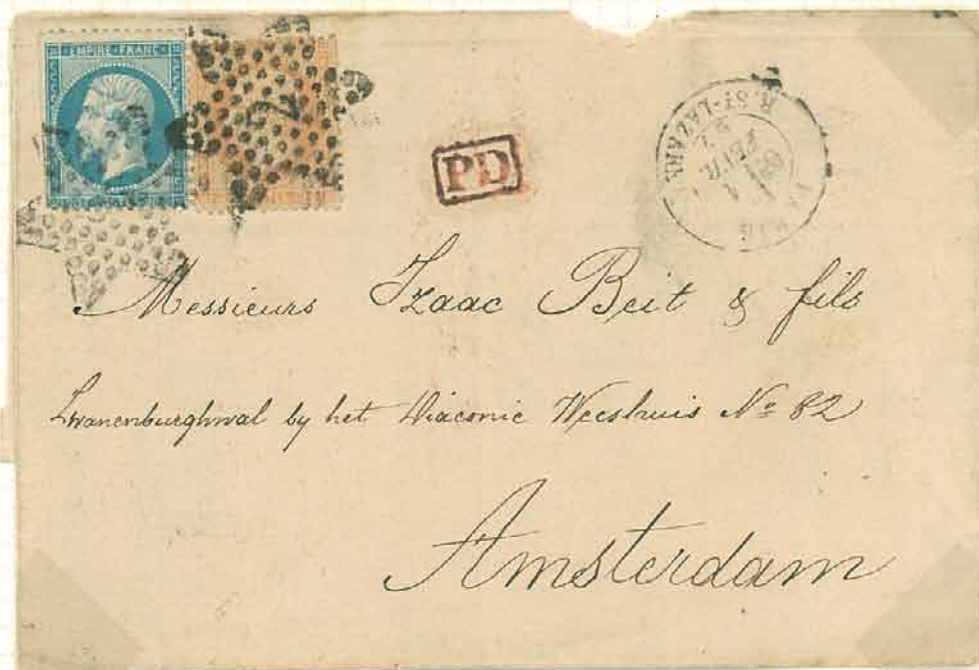 EMPIRE FRANC
2
PD
PARIS
R. ST-LAZARE
FEVR.
Messieurs Izaac Beit & fils
Zwanenburghwal by het Diaconie Weeshuis No 82
Amsterdam